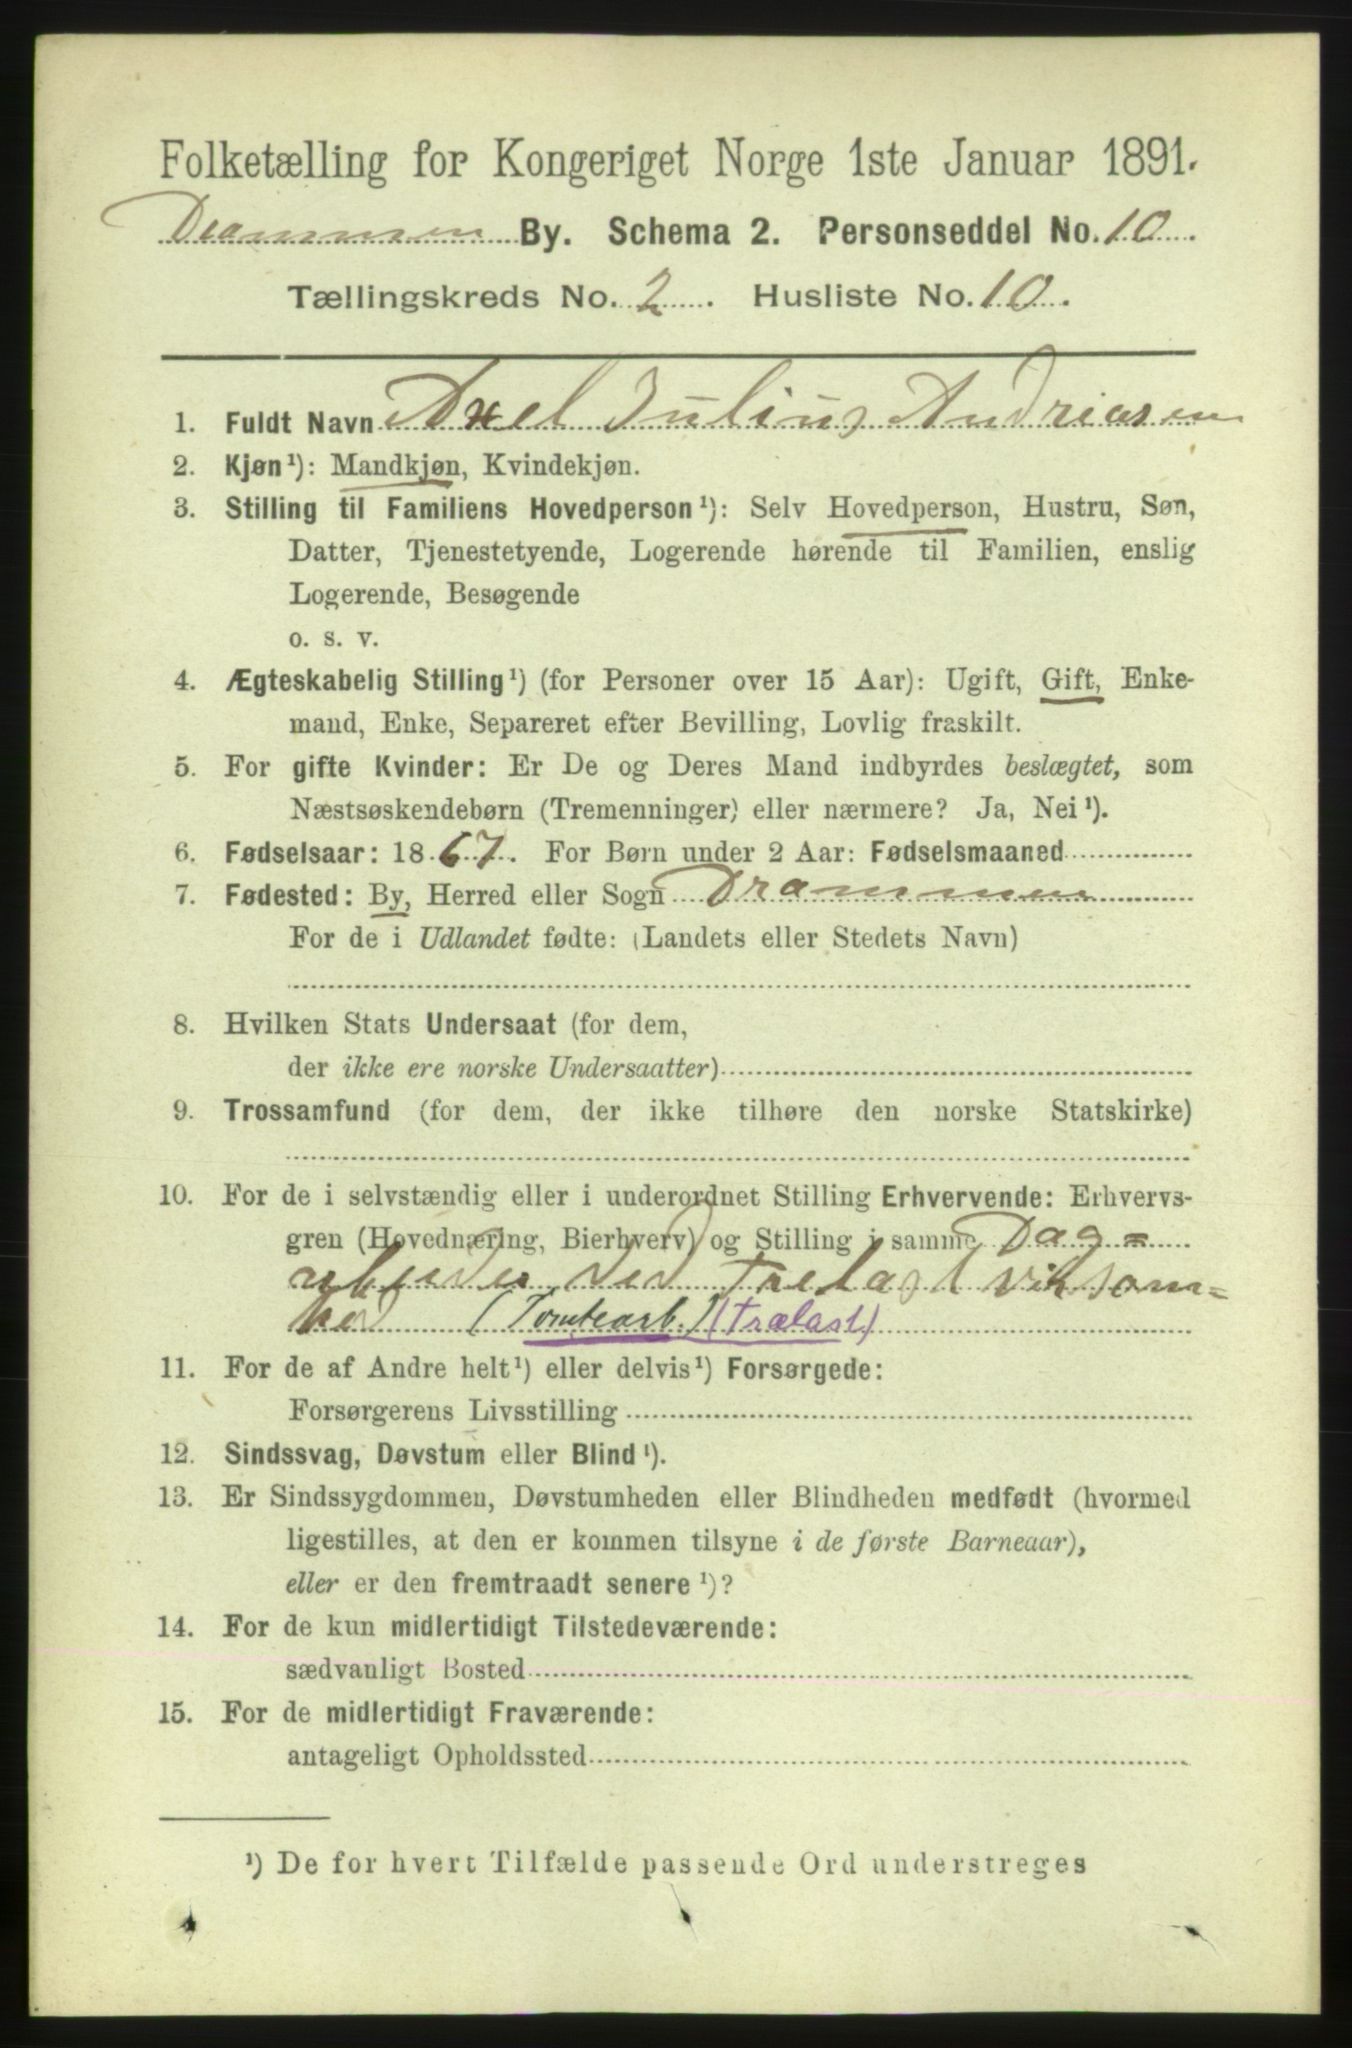 Folketælling for Kongeriget Norge 1ste Januar 1891.
Drammen By. Schema 2. Personseddel No. 10.
Tællingskreds No. 2. Husliste No. 10.
1. Fuldt Navn Axel Julius Andriasen
2. Kjøn¹): Mandkjøn, Kvindekjøn.
3. Stilling til Familiens Hovedperson¹): Selv Hovedperson, Hustru, Søn,
Datter, Tjenestetyende, Logerende hørende til Familien, enslig
Logerende, Besøgende
o. s. v.
4. Ægteskabelig Stilling¹) (for Personer over 15 Aar): Ugift, Gift, Enke-
mand, Enke, Separeret efter Bevilling, Lovlig fraskilt.
5. For gifte Kvinder: Er De og Deres Mand indbyrdes beslægtet, som
Næstsøskendebørn (Tremenninger) eller nærmere? Ja, Nei¹).
6. Fødselsaar: 1867. For Børn under 2 Aar: Fødselsmaaned
7. Fødested: By, Herred eller Sogn Drammen
For de i Udlandet fødte: (Landets eller Stedets Navn)
8. Hvilken Stats Undersaat (for dem,
der ikke ere norske Undersaatter)
9. Trossamfund (for dem, der ikke tilhøre den norske Statskirke)
10. For de i selvstændig eller i underordnet Stilling Erhvervende: Erhvervs-
gren (Hovednæring, Bierhverv) og Stilling i samme Dag=
arbeider ved Trelast virksom=
hed (Tomtearb.) (Trælast)
11. For de af Andre helt¹) eller delvis¹) Forsørgede:
Forsørgerens Livsstilling
12. Sindssvag, Døvstum eller Blind¹).
13. Er Sindssygdommen, Døvstumheden eller Blindheden medfødt (hvormed
ligestilles, at den er kommen tilsyne i de første Barneaar),
eller er den fremtraadt senere¹)?
14. For de kun midlertidigt Tilstedeværende:
sædvanligt Bosted
15. For de midlertidigt Fraværende:
antageligt Opholdssted
¹) De for hvert Tilfælde passende Ord understreges